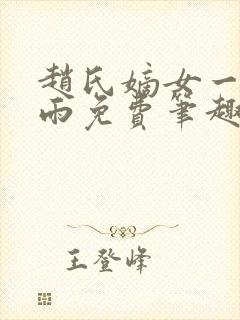 趙氏嫡女一
雨免費筆趣
王登峰